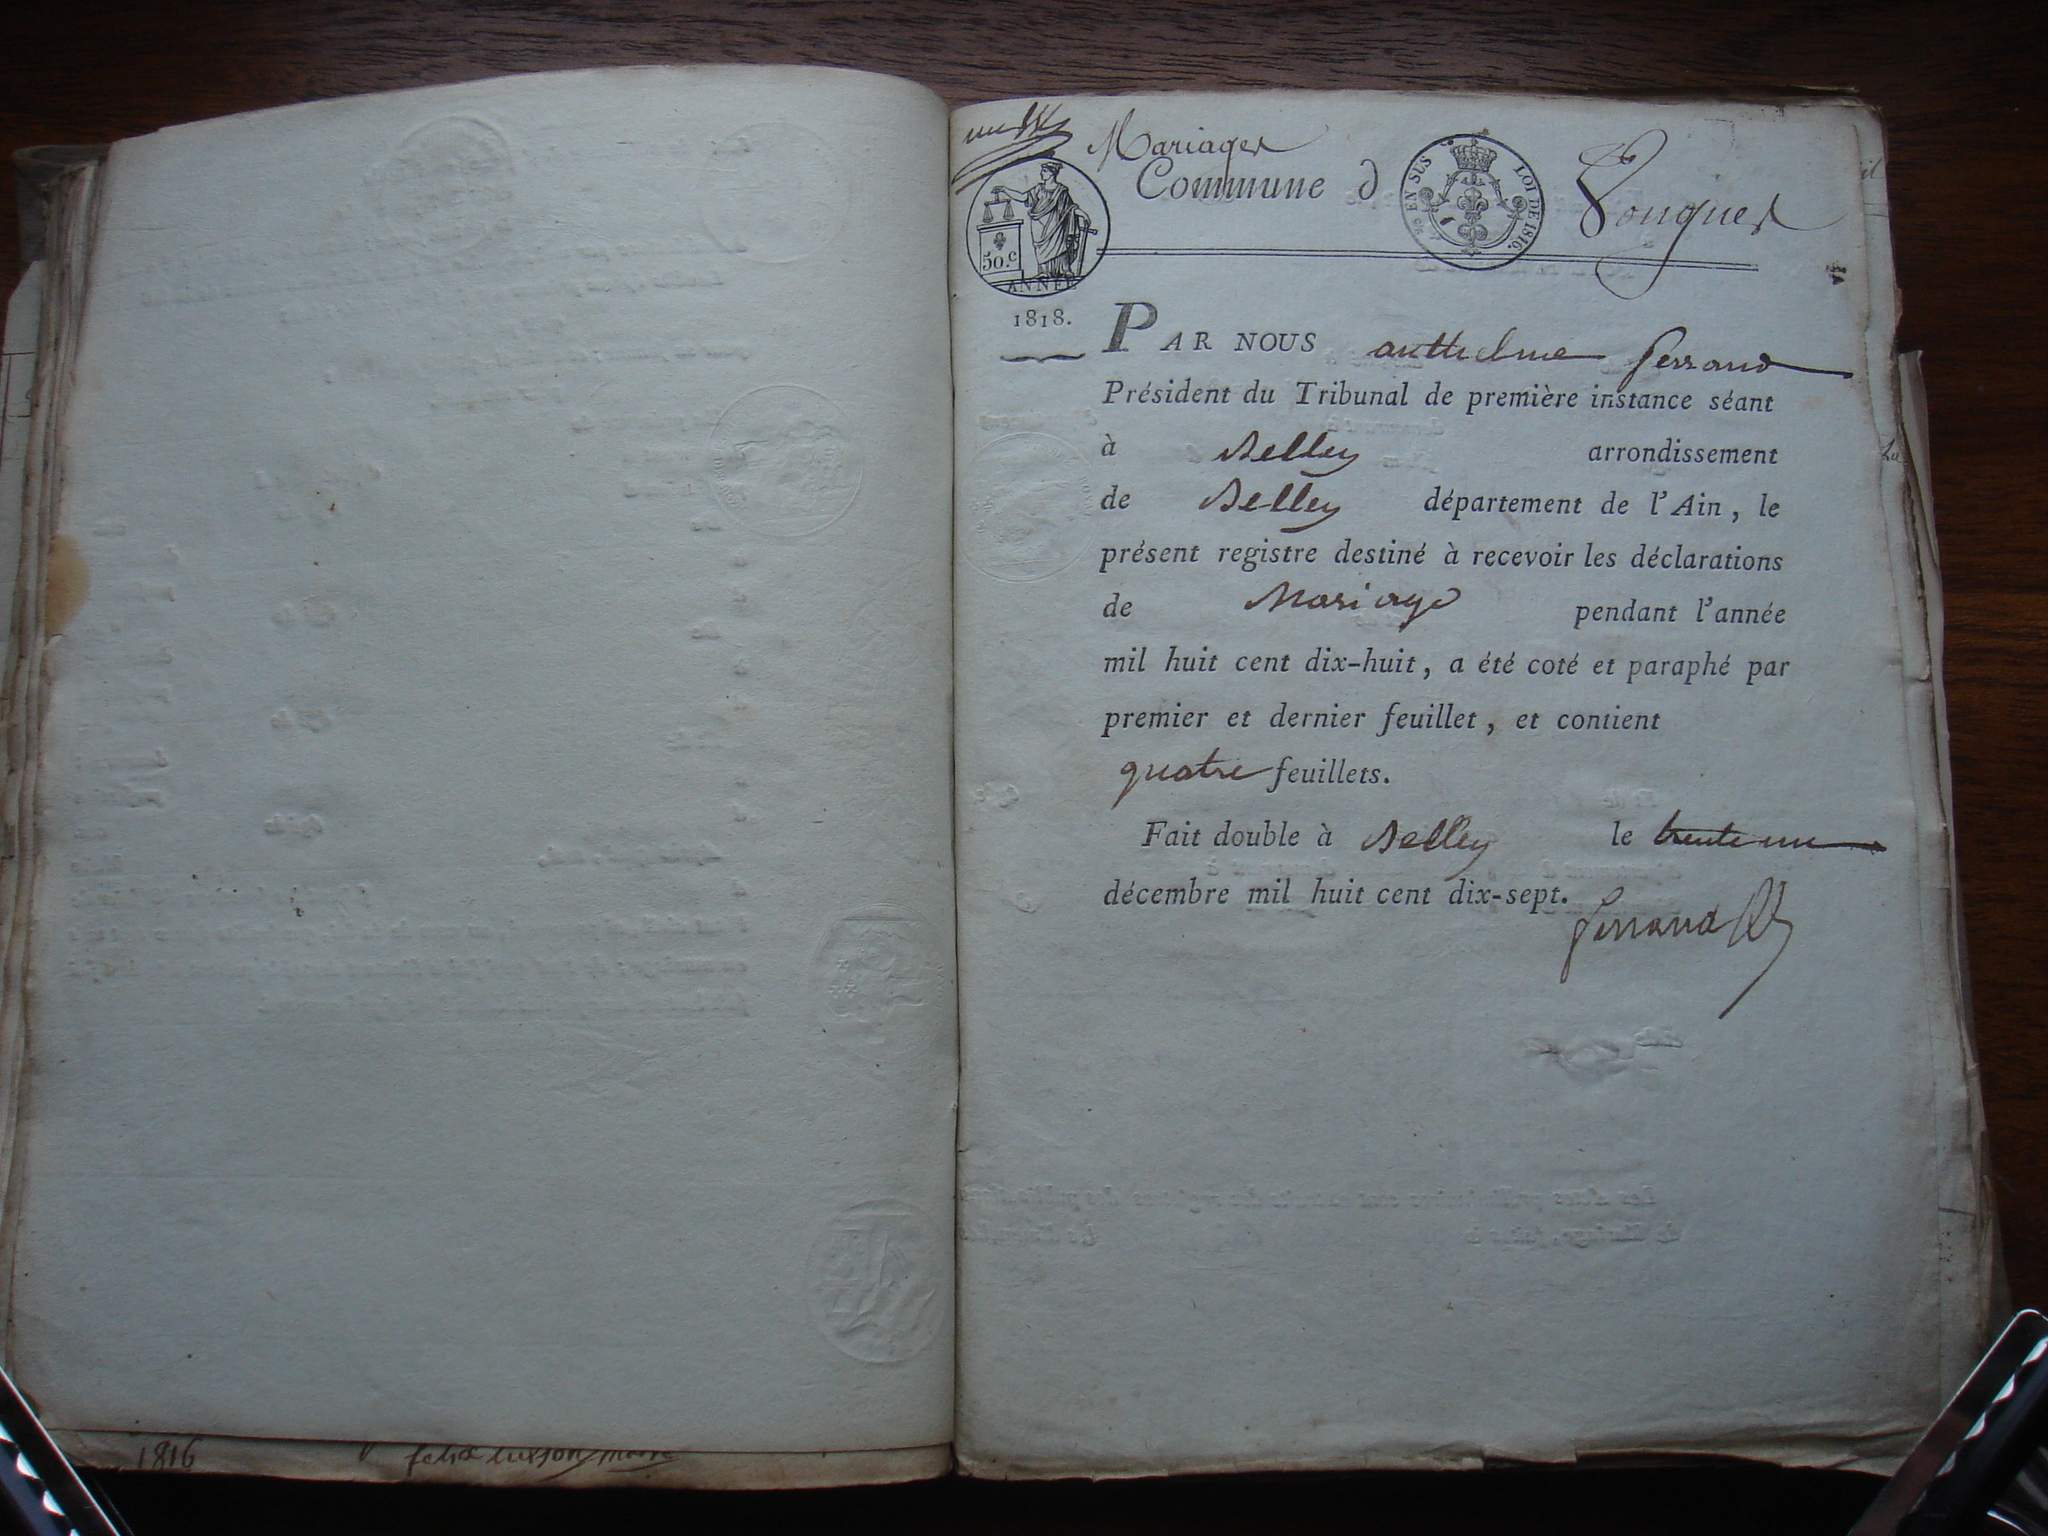 Mariages
Commune d
EN SUS
LOI DE 1816.
50.c
ANNÉE
1818.
PAR NOUS anthelme ferrand
Président du Tribunal de première instance séant
à Belley arrondissement
de Belley département de l'Ain, le
présent registre destiné à recevoir les déclarations
de Mariage pendant l'année
mil huit cent dix-huit, a été coté et paraphé par
premier et dernier feuillet, et contient
quatre feuillets.
Fait double à Belley le trente un
décembre mil huit cent dix-sept.
ferrand
1816